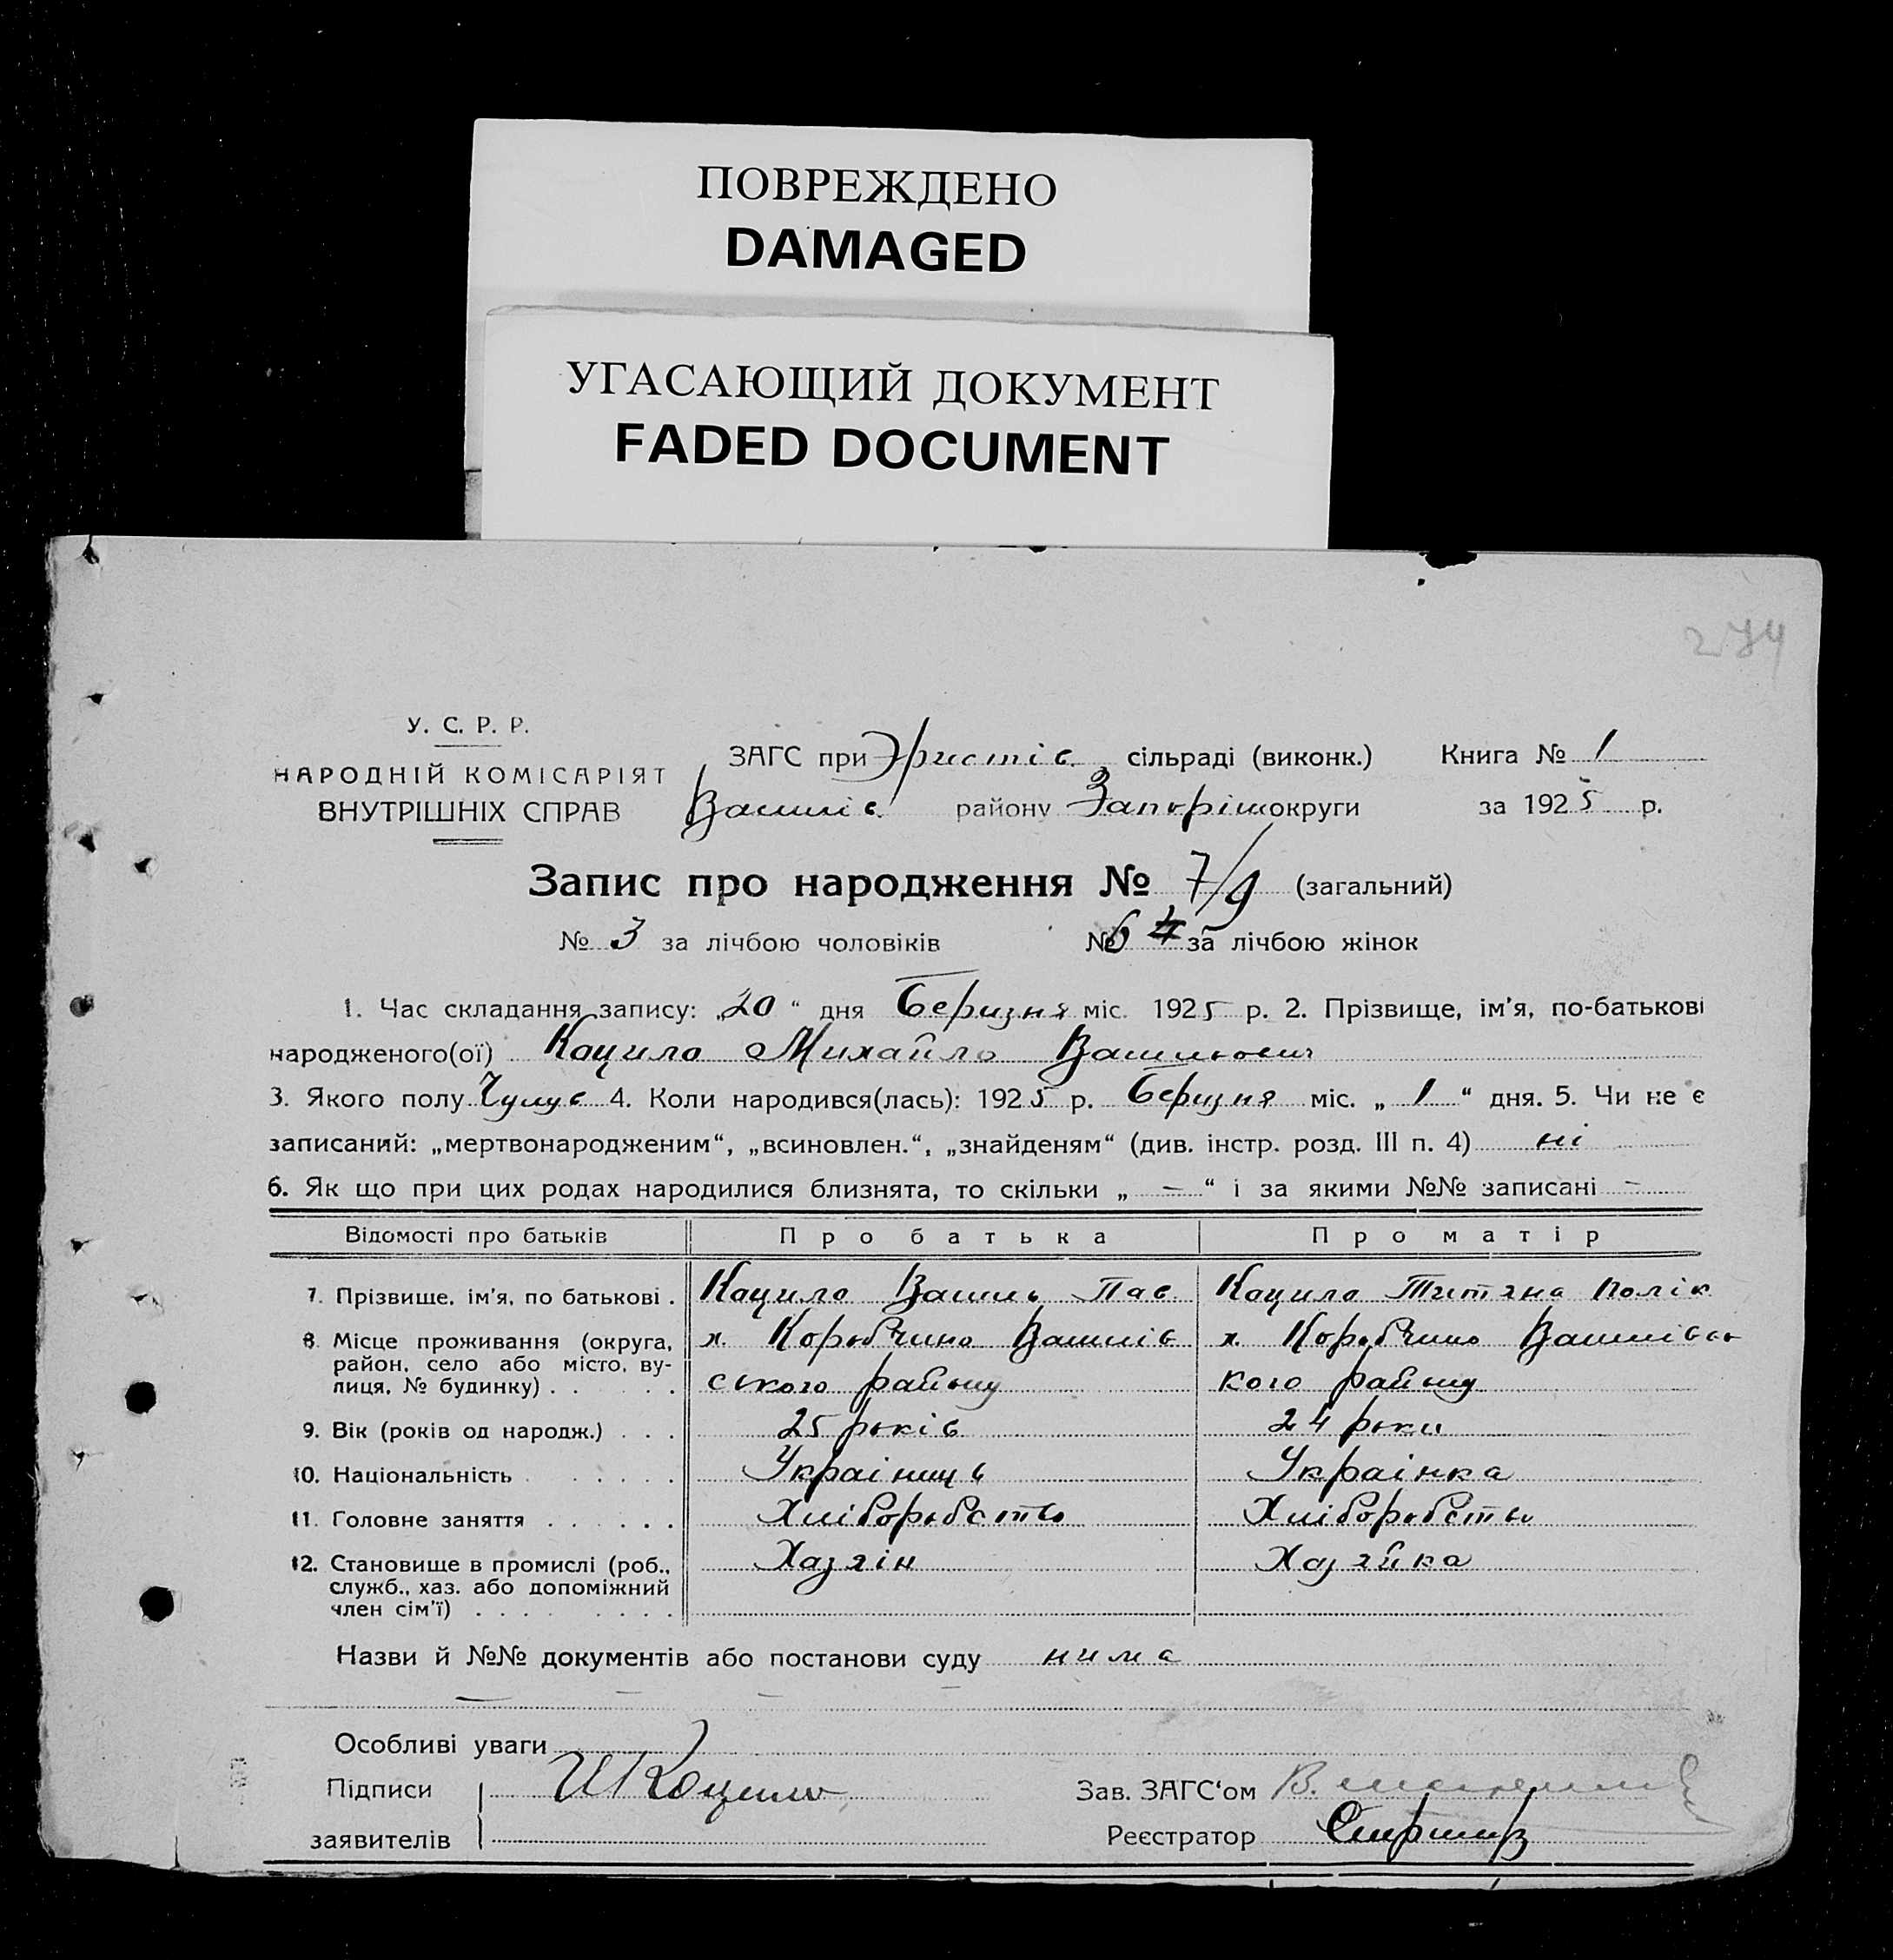 ПОВРЕЖДЕНО
DAMAGED
УГАСАЮЩИЙ ДОКУМЕНТ
FADED DOCUMENT
274
У. С. Р. Р.
НАРОДНІЙ КОМІСАРІЯТ
ВНУТРІШНІХ СПРАВ
ЗАГС при сільраді (виконк.) Книга № 1
району Запоріш округи за 1925 р.
Запис про народження № 7/9 (загальний)
№ 3 за лічбою чоловіків № 6 4 за лічбою жінок
1. Час складання запису: „20“ дня Беризня міс. 1925 р. 2. Прізвище, ім'я, по-батькові
народженого(ої) Коцило Михайло Васильович
3. Якого полу 4. Коли народився(лась): 1925 р. Беризня міс. „1“ дня. 5. Чи не є
записаний: „мертвонародженим“, „всиновлен.“, „знайденям“ (див. інстр. розд. III п. 4) ні
6. Як що при цих родах народилися близнята, то скільки „ — “ і за якими №№ записані —
Відомості про батьків Про батька Про матір
7. Прізвище, ім'я, по батькові . Коцило Василь Пав Коцило Титяна Полік
8 Місце проживання (округа, х. Коробчино Василів х. Коробчино Василівсь
район, село або місто, ву-
лиця, № будинку) . . . . . ського району кого району
9. Вік (років од народж.) . . . 25 років 24 роки
10. Національність . . . . . . Україниць Українка
11. Головне заняття . . . . . . Хліборобство Хліборобство
12. Становище в промислі (роб., Хазяін Хазяйка
служб., хаз. або допоміжний
член сім'ї) . . . . . . . .
Назви й №№ документів або постанови суду нима
Особливі уваги
Підписи И Коцило Зав. ЗАГС'ом В.
заявителів Реєстратор